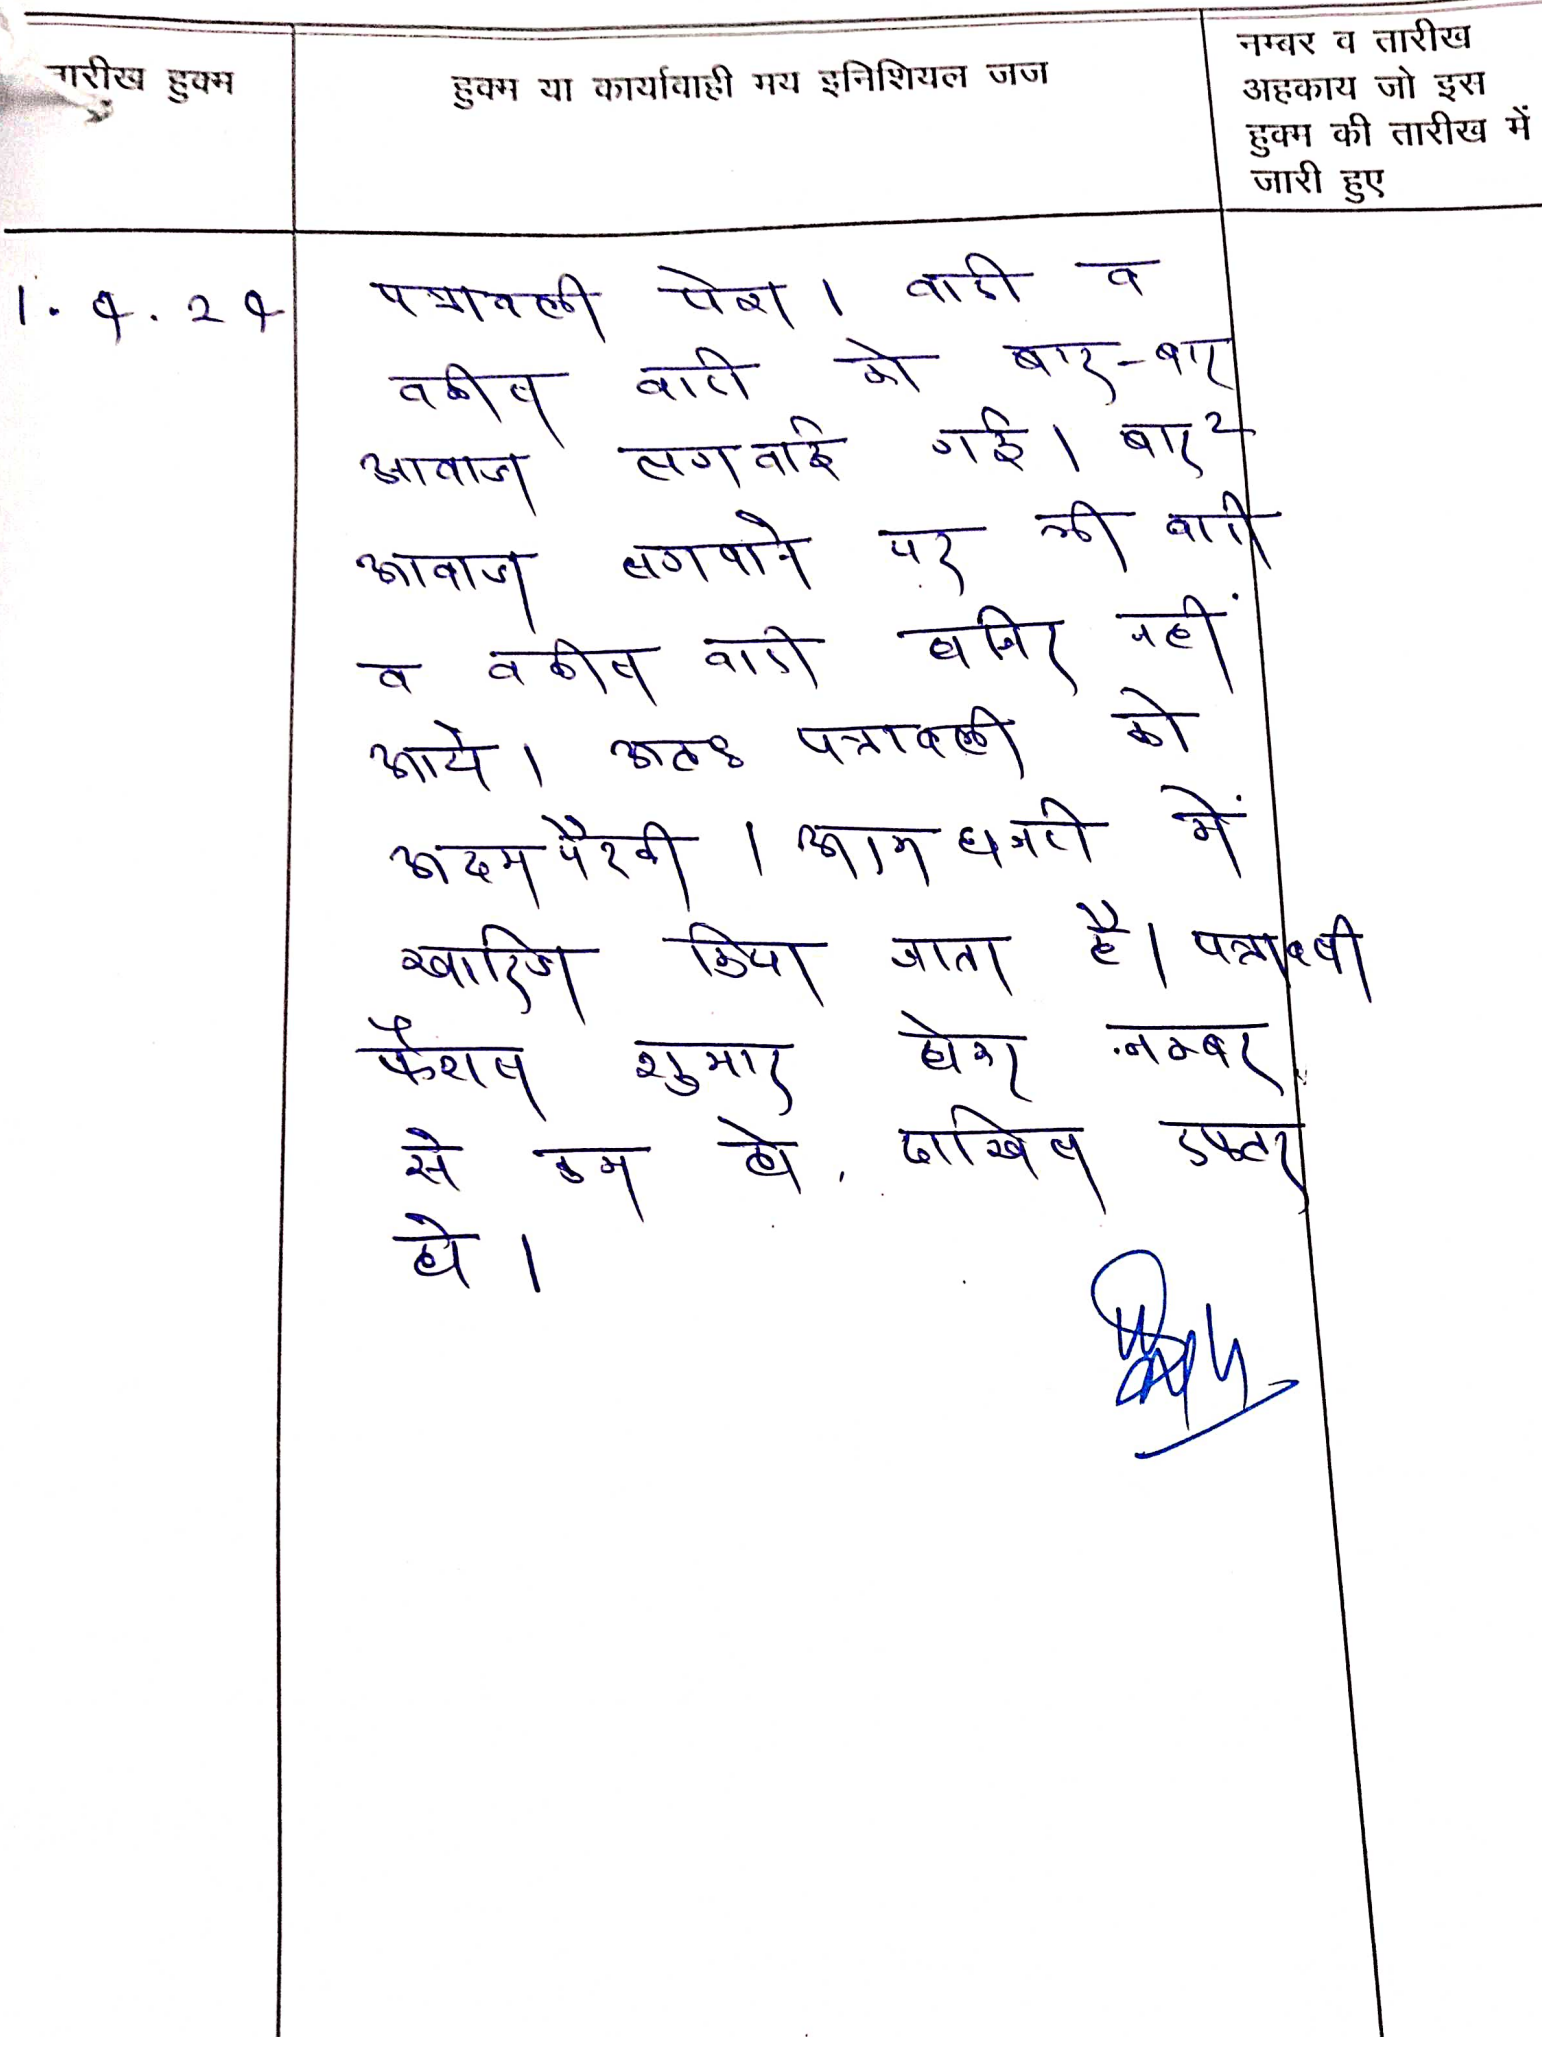 तारीख हुक्म
हुक्म या कार्यावाही मय इनिशियल जज
नम्बर व तारीख
अहकाय जो इस
हुक्म की तारीख में
जारी हुए
1.4.24
पत्रावली पेश। वादी व
वकील वादी को बार-बार
आवाज लगवाई गई। बार2
आवाज लगवाने पर भी वादी
व वकील वादी हाजिर नहीं
आये। अतः पत्रावली को
अदम पैरवी। अदम हाजरी में
खारिज किया जाता है। पत्रावली
फैशल शुमार होकर नम्बर
से कम हो, दाखिल दफ्तर
हो।